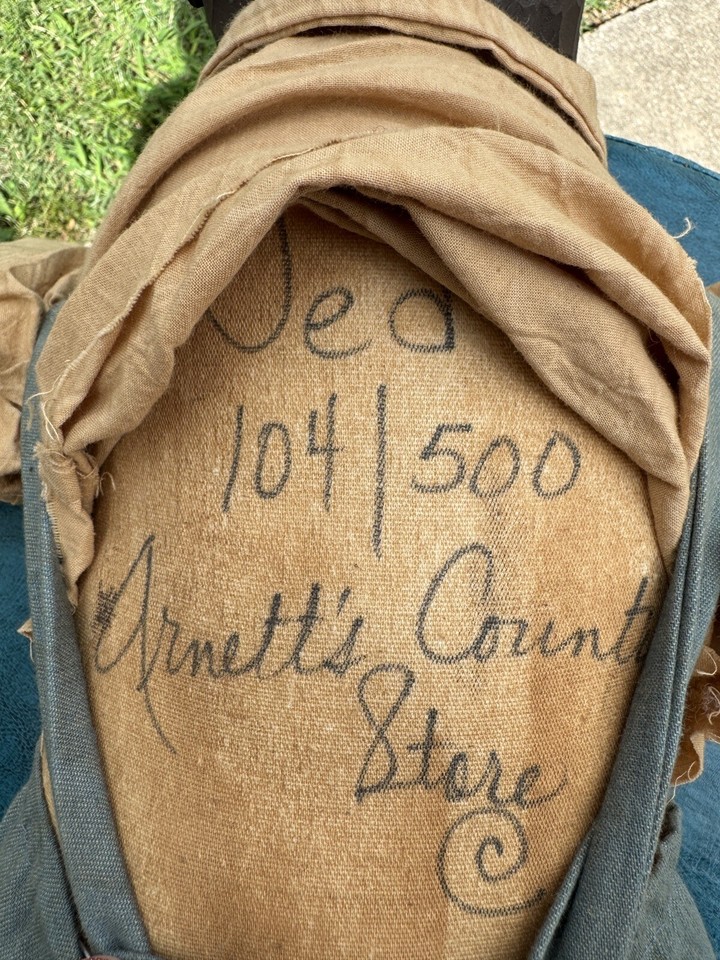 Jed
104/500
Arnett's Count
Store